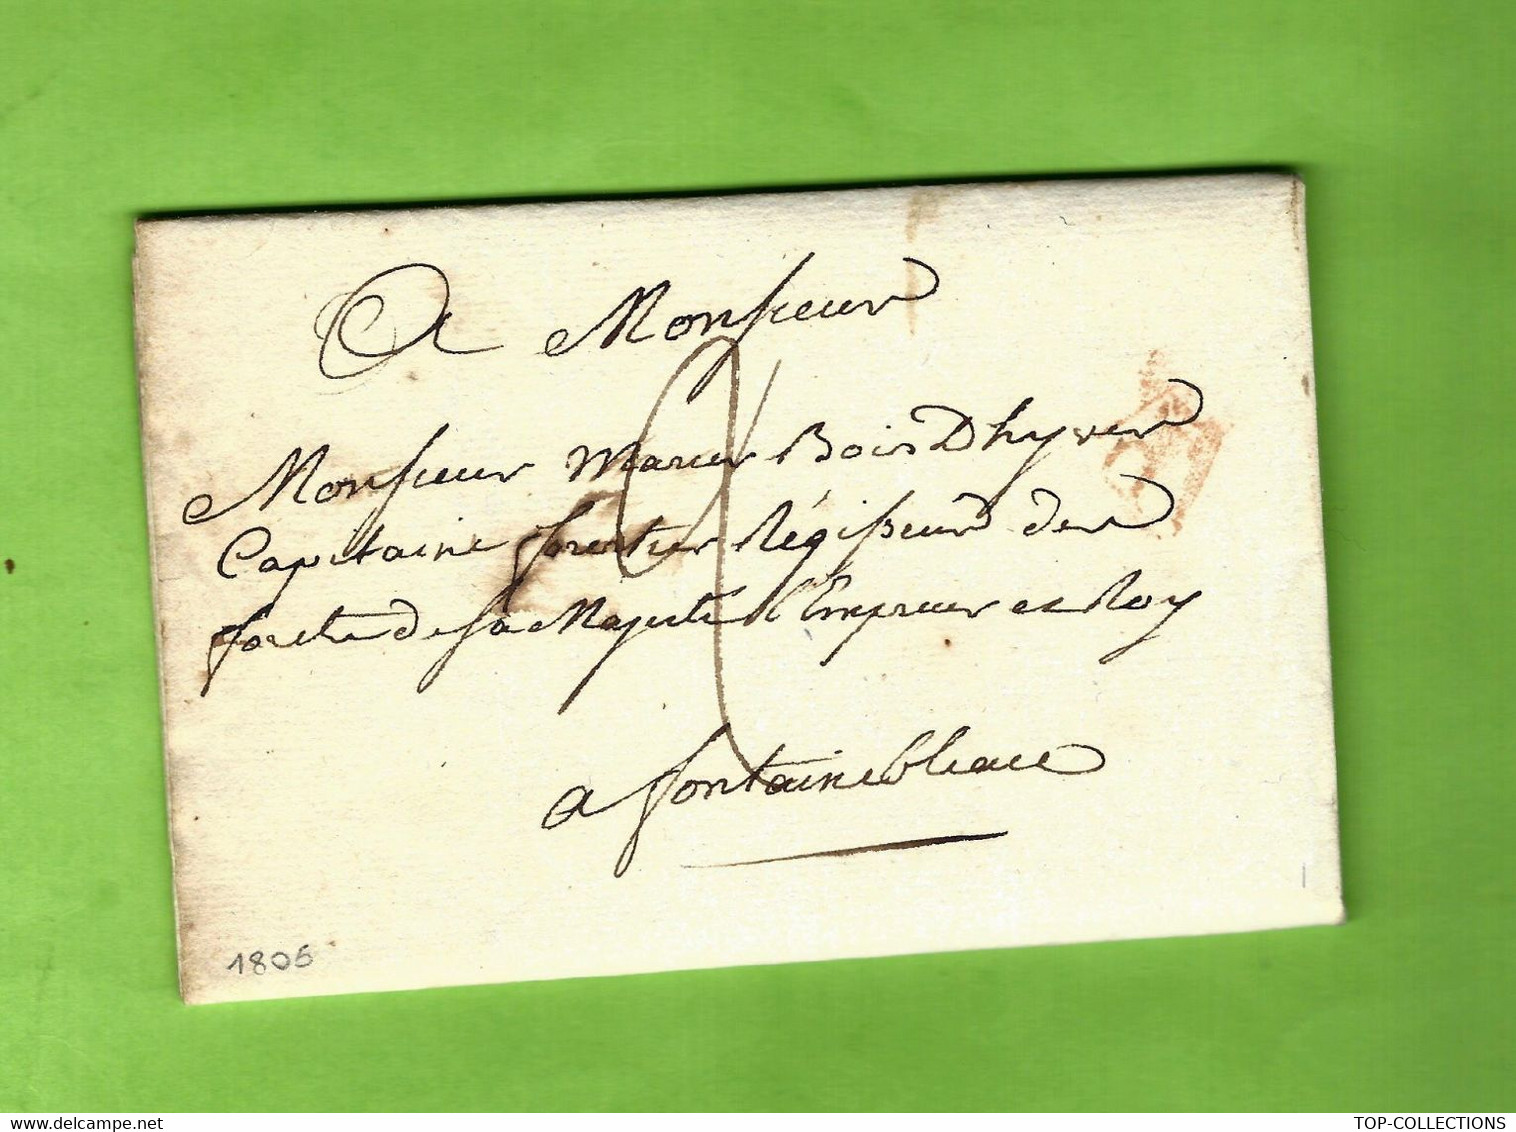 A Monsieur
Monsieur Marier Bois Dhyver
Capitaine forestier Régisseur des
forets de sa Majesté l'Empereur et Roy
a fontainebleau
2
1806
delcampe.net
TOP-COLLECTIONS